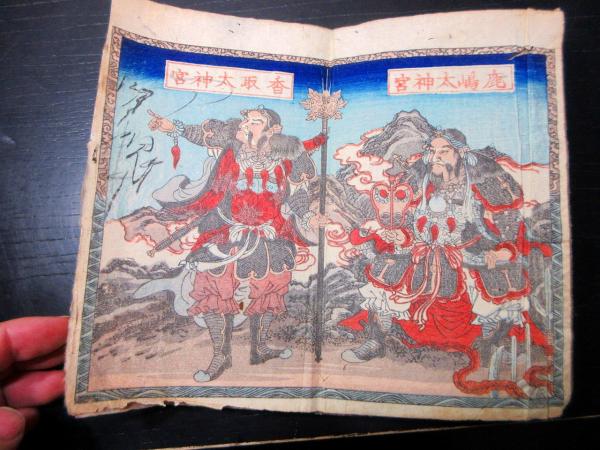 鹿嶋太神宮
香取太神宮